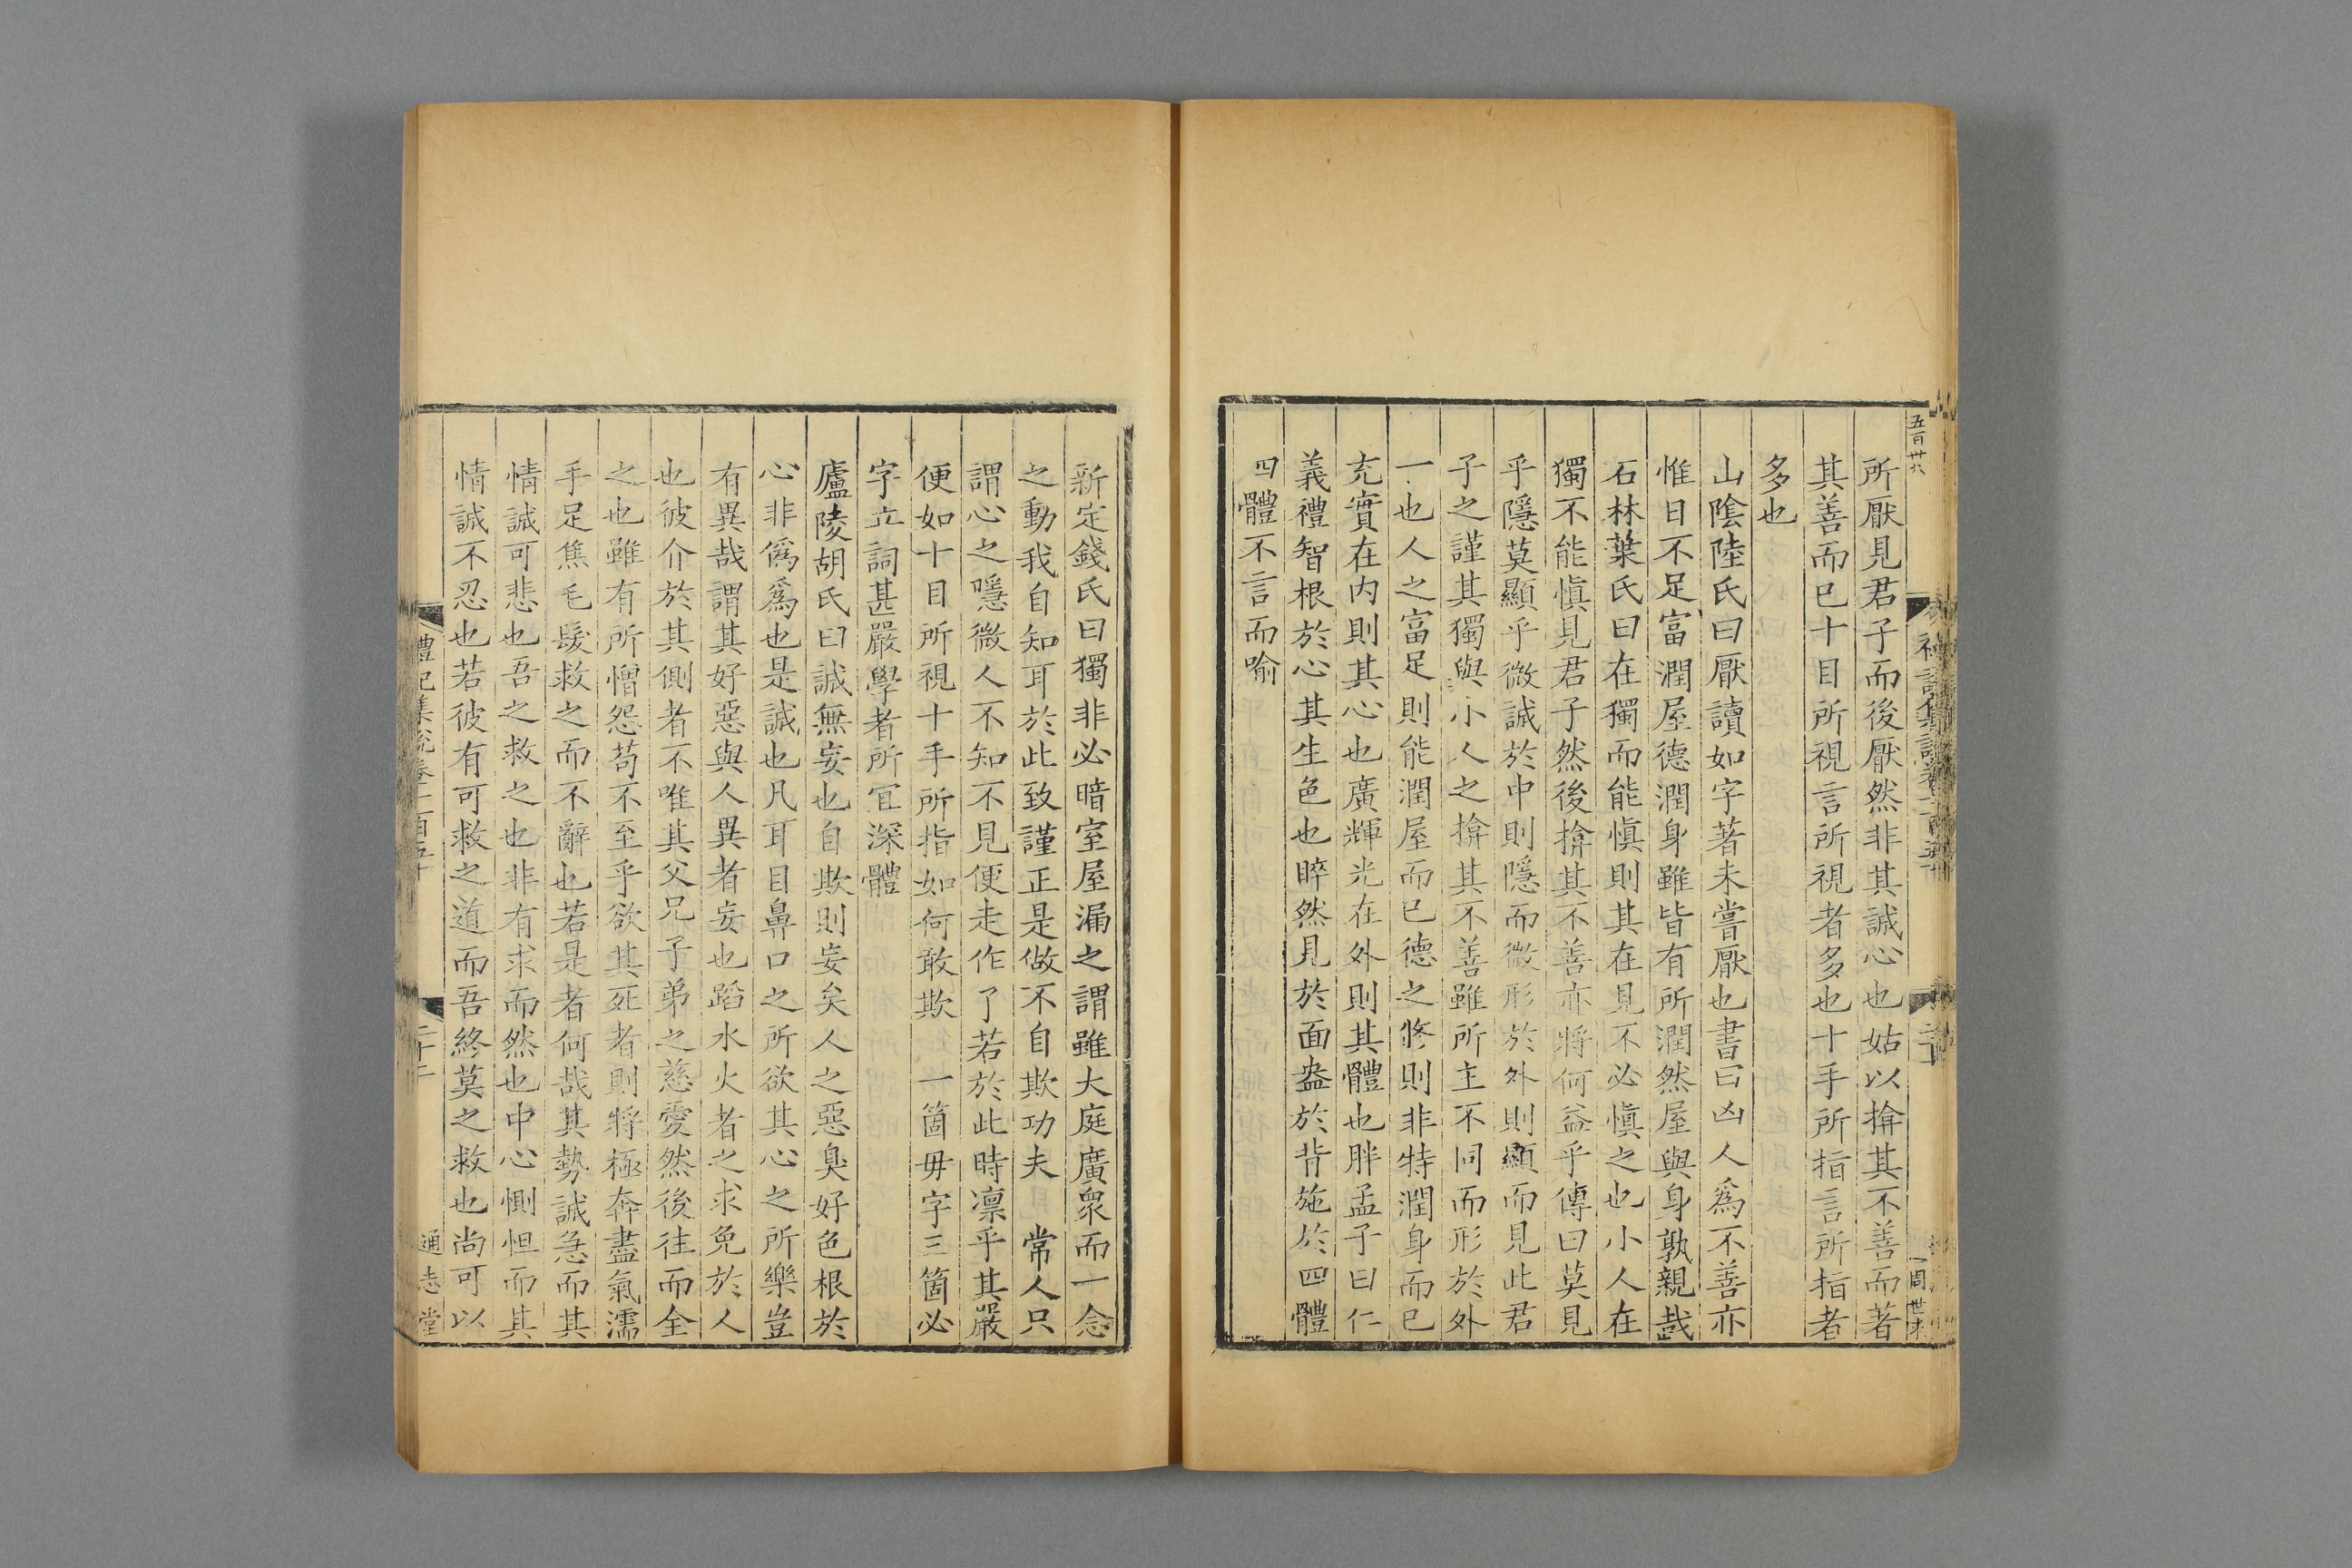 五百卅六
所厭見君子而後厭然非其誠心也姑以揜其不善而著
其善而已十目所視言所視者多也十手所指言所指者
多也
山陰陸氏曰厭讀如字著未嘗厭也書曰凶人爲不善亦
惟日不足富潤屋德潤身雖皆有所潤然屋與身孰親哉
石林葉氏曰在獨而能愼則其在見不必愼之也小人在
獨不能愼見君子然後揜其不善亦將何益乎傳曰莫見
乎隱莫顯乎微誠於中則隱而微形於外則顯而見此君
子之謹其獨與小人之揜其不善雖所主不同而形於外
一也人之富足則能潤屋而已德之修則非特潤身而已
充實在内則其心也廣輝光在外則其體也胖孟子曰仁
義禮智根於心其生色也睟然見於面盎於背施於四體
四體不言而喻
新定錢氏曰獨非必暗室屋漏之謂雖大庭廣衆而一念
之動我自知耳於此致謹正是做不自欺功夫 常人只
謂心之隱微人不知不見便走作了若於此時凛乎其嚴
便如十目所視十手所指如何敢欺 一箇毋字三箇必
字立詞甚嚴學者所宜深體
廬陵胡氏曰誠無妄也自欺則妄矣人之惡臭好色根於
心非僞爲也是誠也凡耳目鼻口之所欲其心之所樂豈
有異哉謂其好惡與人異者妄也蹈水火者之求免於人
也彼介於其側者不唯其父兄子弟之慈愛然後往而全
之也雖有所憎怨苟不至乎欲其死者則將極奔盡氣濡
手足焦毛髮救之而不辭也若是者何哉其勢誠急而其
情誠可悲也吾之救之也非有求而然也中心惻怛而其
情誠不忍也若彼有可救之道而吾終莫之救也尚可以
禮記集說卷一百五十
二十二
通志堂